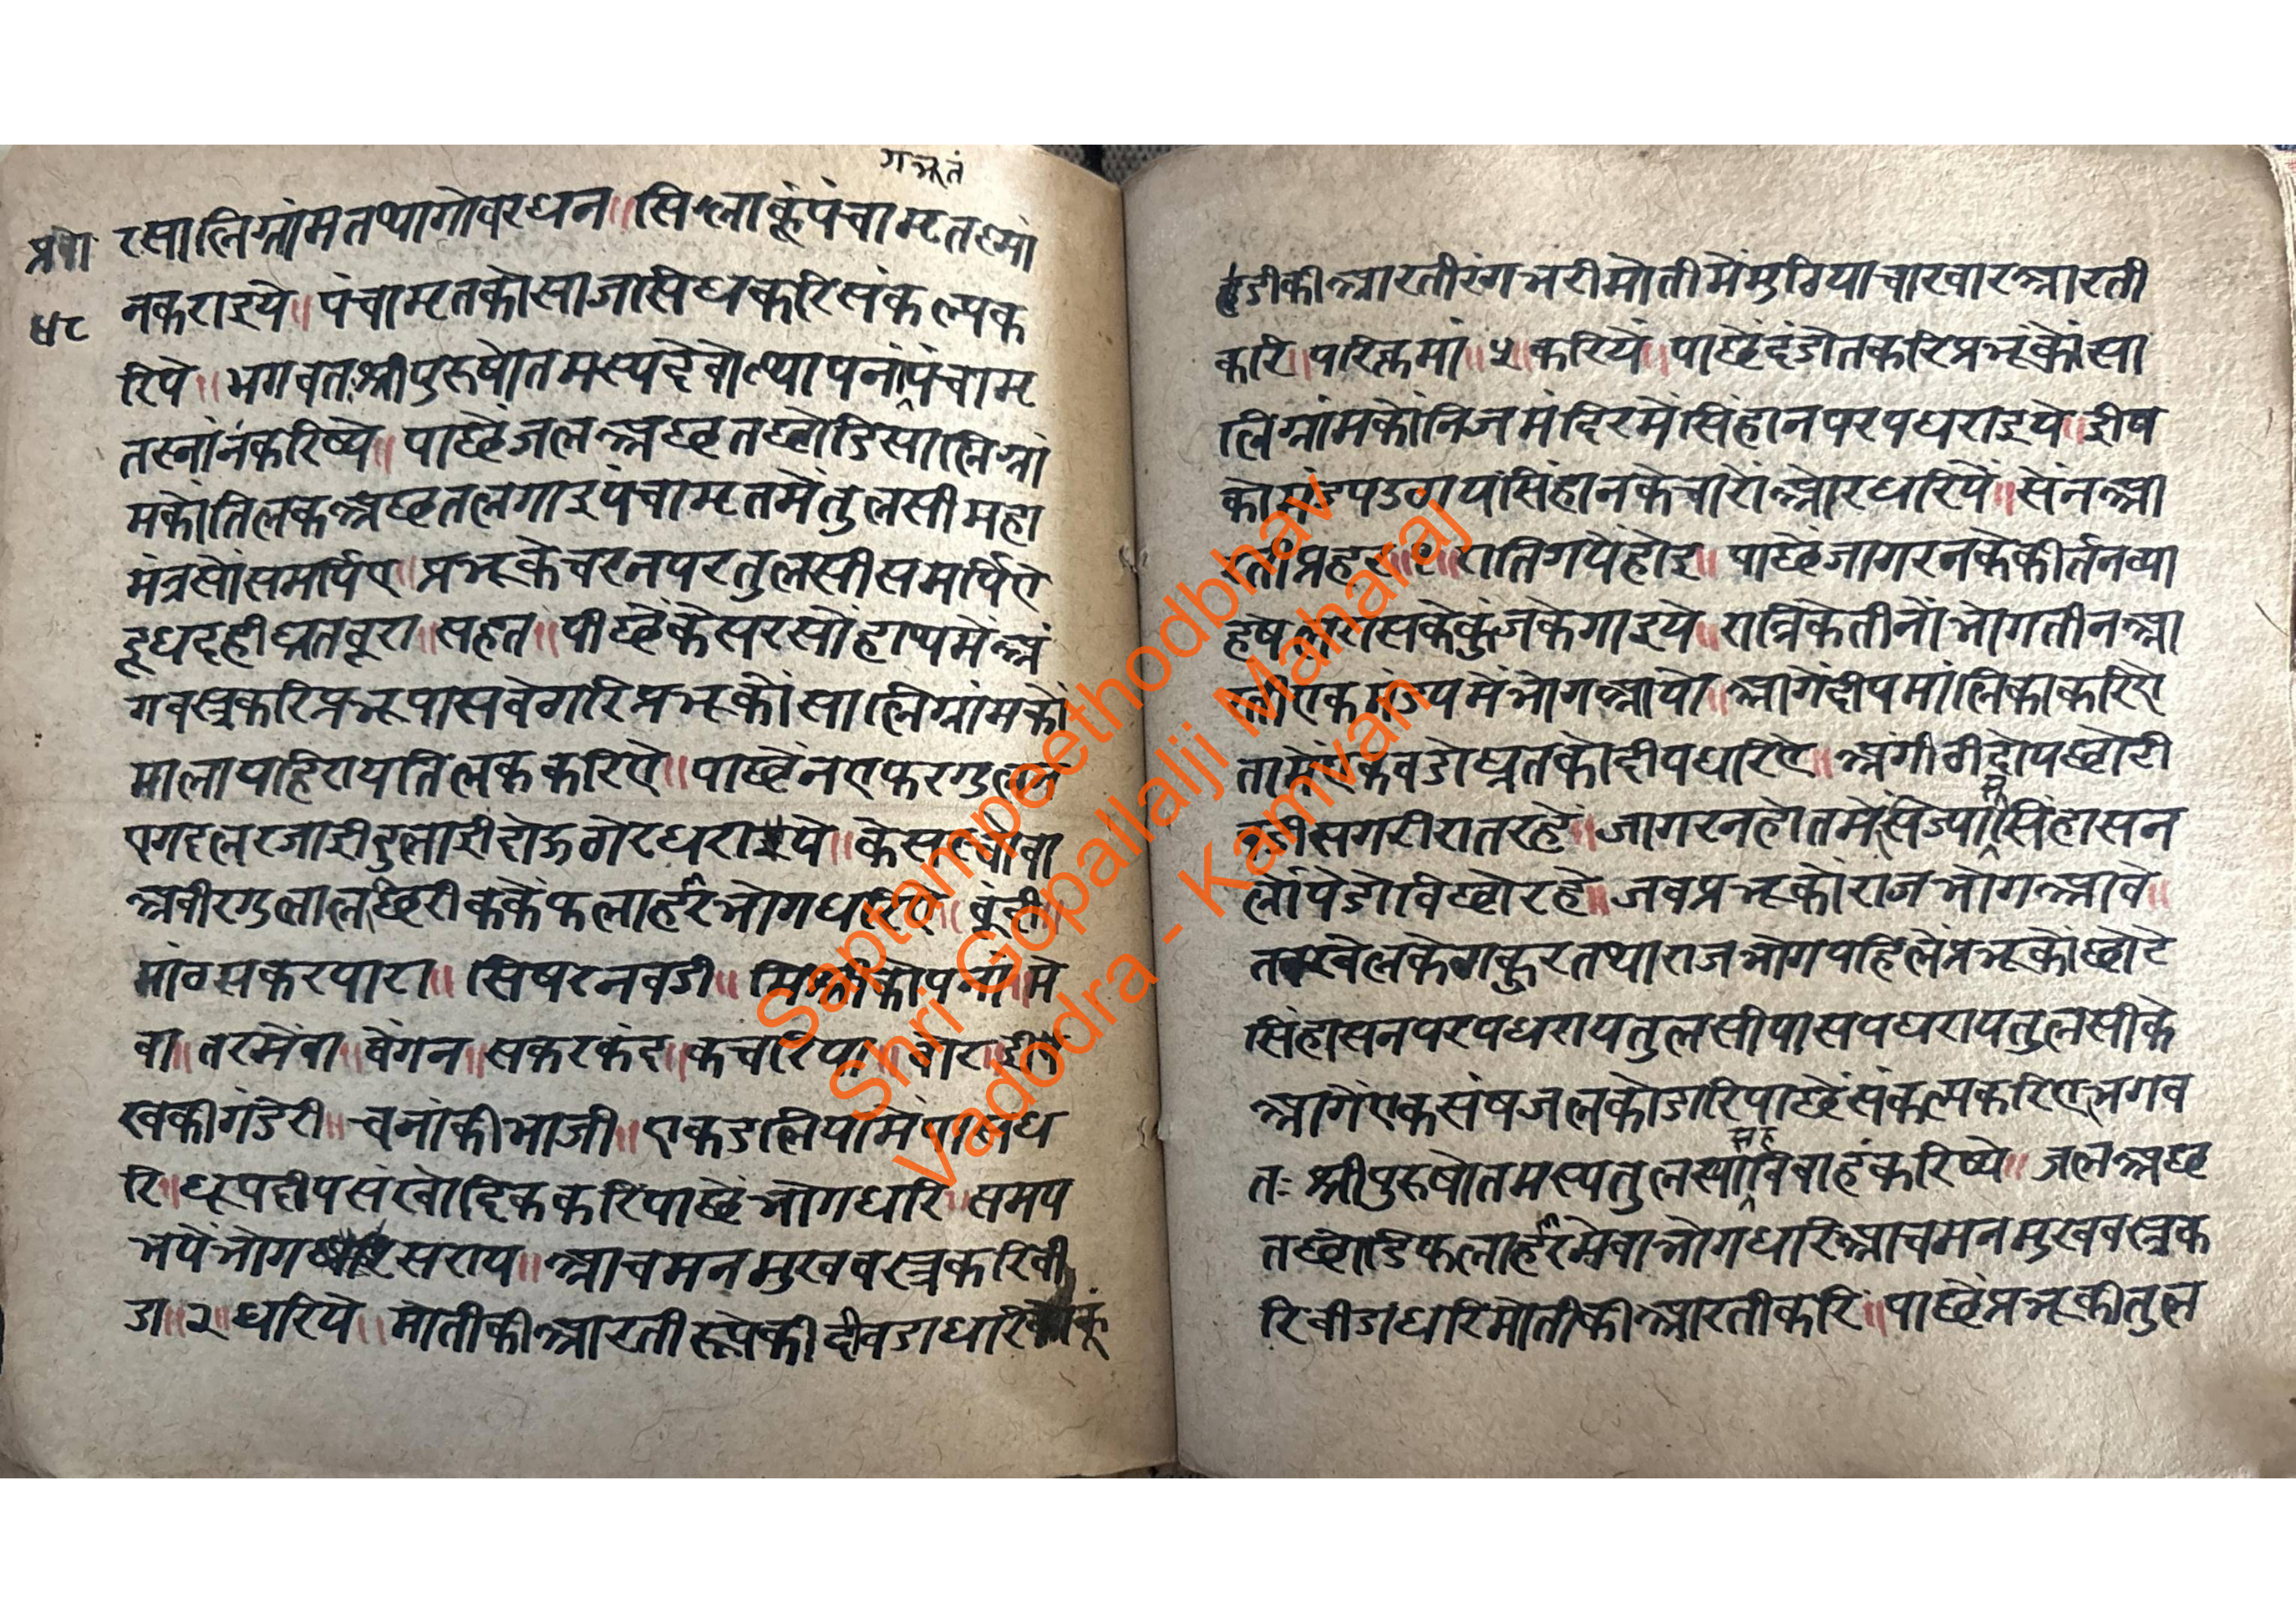 गभ्रतं
प्रवो
४८
रसालिग्रांमतथागोवरधन॥सिलाकूंपंचामृतस्नां
नकराइये॥पंचामृतकोसाजासिधकरिसंकल्पक
रिये॥भगवतःश्रीपुरुषोतमस्यदेवोत्थापनांपंचामृ
तस्नांनंकरिष्ये॥पाछेंजलअछतछोडिसालिग्रां
मकोंतिलकअछतलगाइपंचामृतमेंतुलसीमहा
मंत्रसोंसमर्पिए॥प्रभूकेचरनपरतुलसीसमर्पिए
दूधदहीघ्रतबूरा॥सहत॥पीछेंकेसरसोंहाथमेंअं
गवस्त्रकरिप्रभूपासबेगारिप्रभूकोंसालिग्रांमकों
मालापहिरायतिलककरिऐ॥पाछेंनएफरगुलल
एगदलरजाईदुलाईदोऊठोरधराइये॥केसरचोवा
अबीरगुलालछिरकेंफलाहरभोगधरिए॥बूंदी
मांठसकरपारा॥सिषरनवडी॥मिश्रीकोपनां॥मे
वा॥तरमेवा॥बेंगन॥सकरकंद॥कचरिया॥बोर॥ई
खकीगंडेरी॥चनांकीभाजी॥एकडलियामें
रि॥धूपदीपसंखोदिककरिपाछेंभोगधरि॥समय
भयेंभोगसराय॥आचमनमुखवस्त्रकरिबी
डा॥२॥धरिये॥मोतीकीआरतीरूपेकीदीवडाधरि
डीकीआरतीरंगभरीमोतीमेंमुठियाचारवारआरती
करि॥परिक्रमां॥५॥करियें॥पाछेंदंडोतकरिप्रभूंकोंसा
लिग्रांमकोंनिजमंदिरमेंसिंहानपरपधराइये॥ईष
कामंडपउठायसिंहानकेचारोंओरधरियें॥सेंनआ
रतीप्रहर॥१॥रातिगयेंहोइ॥पाछेंजागरनकेकीर्तनब्या
हषेलरासकेकुंजकेगाइये॥रात्रिकेतीनोंभोगतीनआ
रतीएकमंडपमेंभोगआयो॥आगेंदीपमालिकाकरिऐ
तामेंएकबडोघ्रतकोदीपधरिऐ॥अंगीठीदोयछोटी
बडीसगरीरातरहें॥जागरनहोतमेंसिज्यासोंसिंहासन
लोंपेंडोविछोरहे॥जबप्रभूकोंराजभोगआवे॥
तबषेलकेठाकुरतथाराजभोगपहिलेंप्रभूकोंछोटे
सिंहासनपरपधरायतुलसीपासपधरायतुलसीके
आगेंएकसंषजलकोडारिपाछेंसंकल्पकरिऐभगव
तः श्रीपुरुषोतमस्यतुलस्यासहविवाहंकरिष्ये॥जलअछ
तछोडिफलाहरमेवाभोगधरिआचमनमुखवस्त्रक
रिबीडाधरिमोतीकीआरतीकरि॥पाछेंप्रभूकीतुल
Saptampeethodbhav
Shri Gopallalji Maharaj
Vadodra - Kamvan